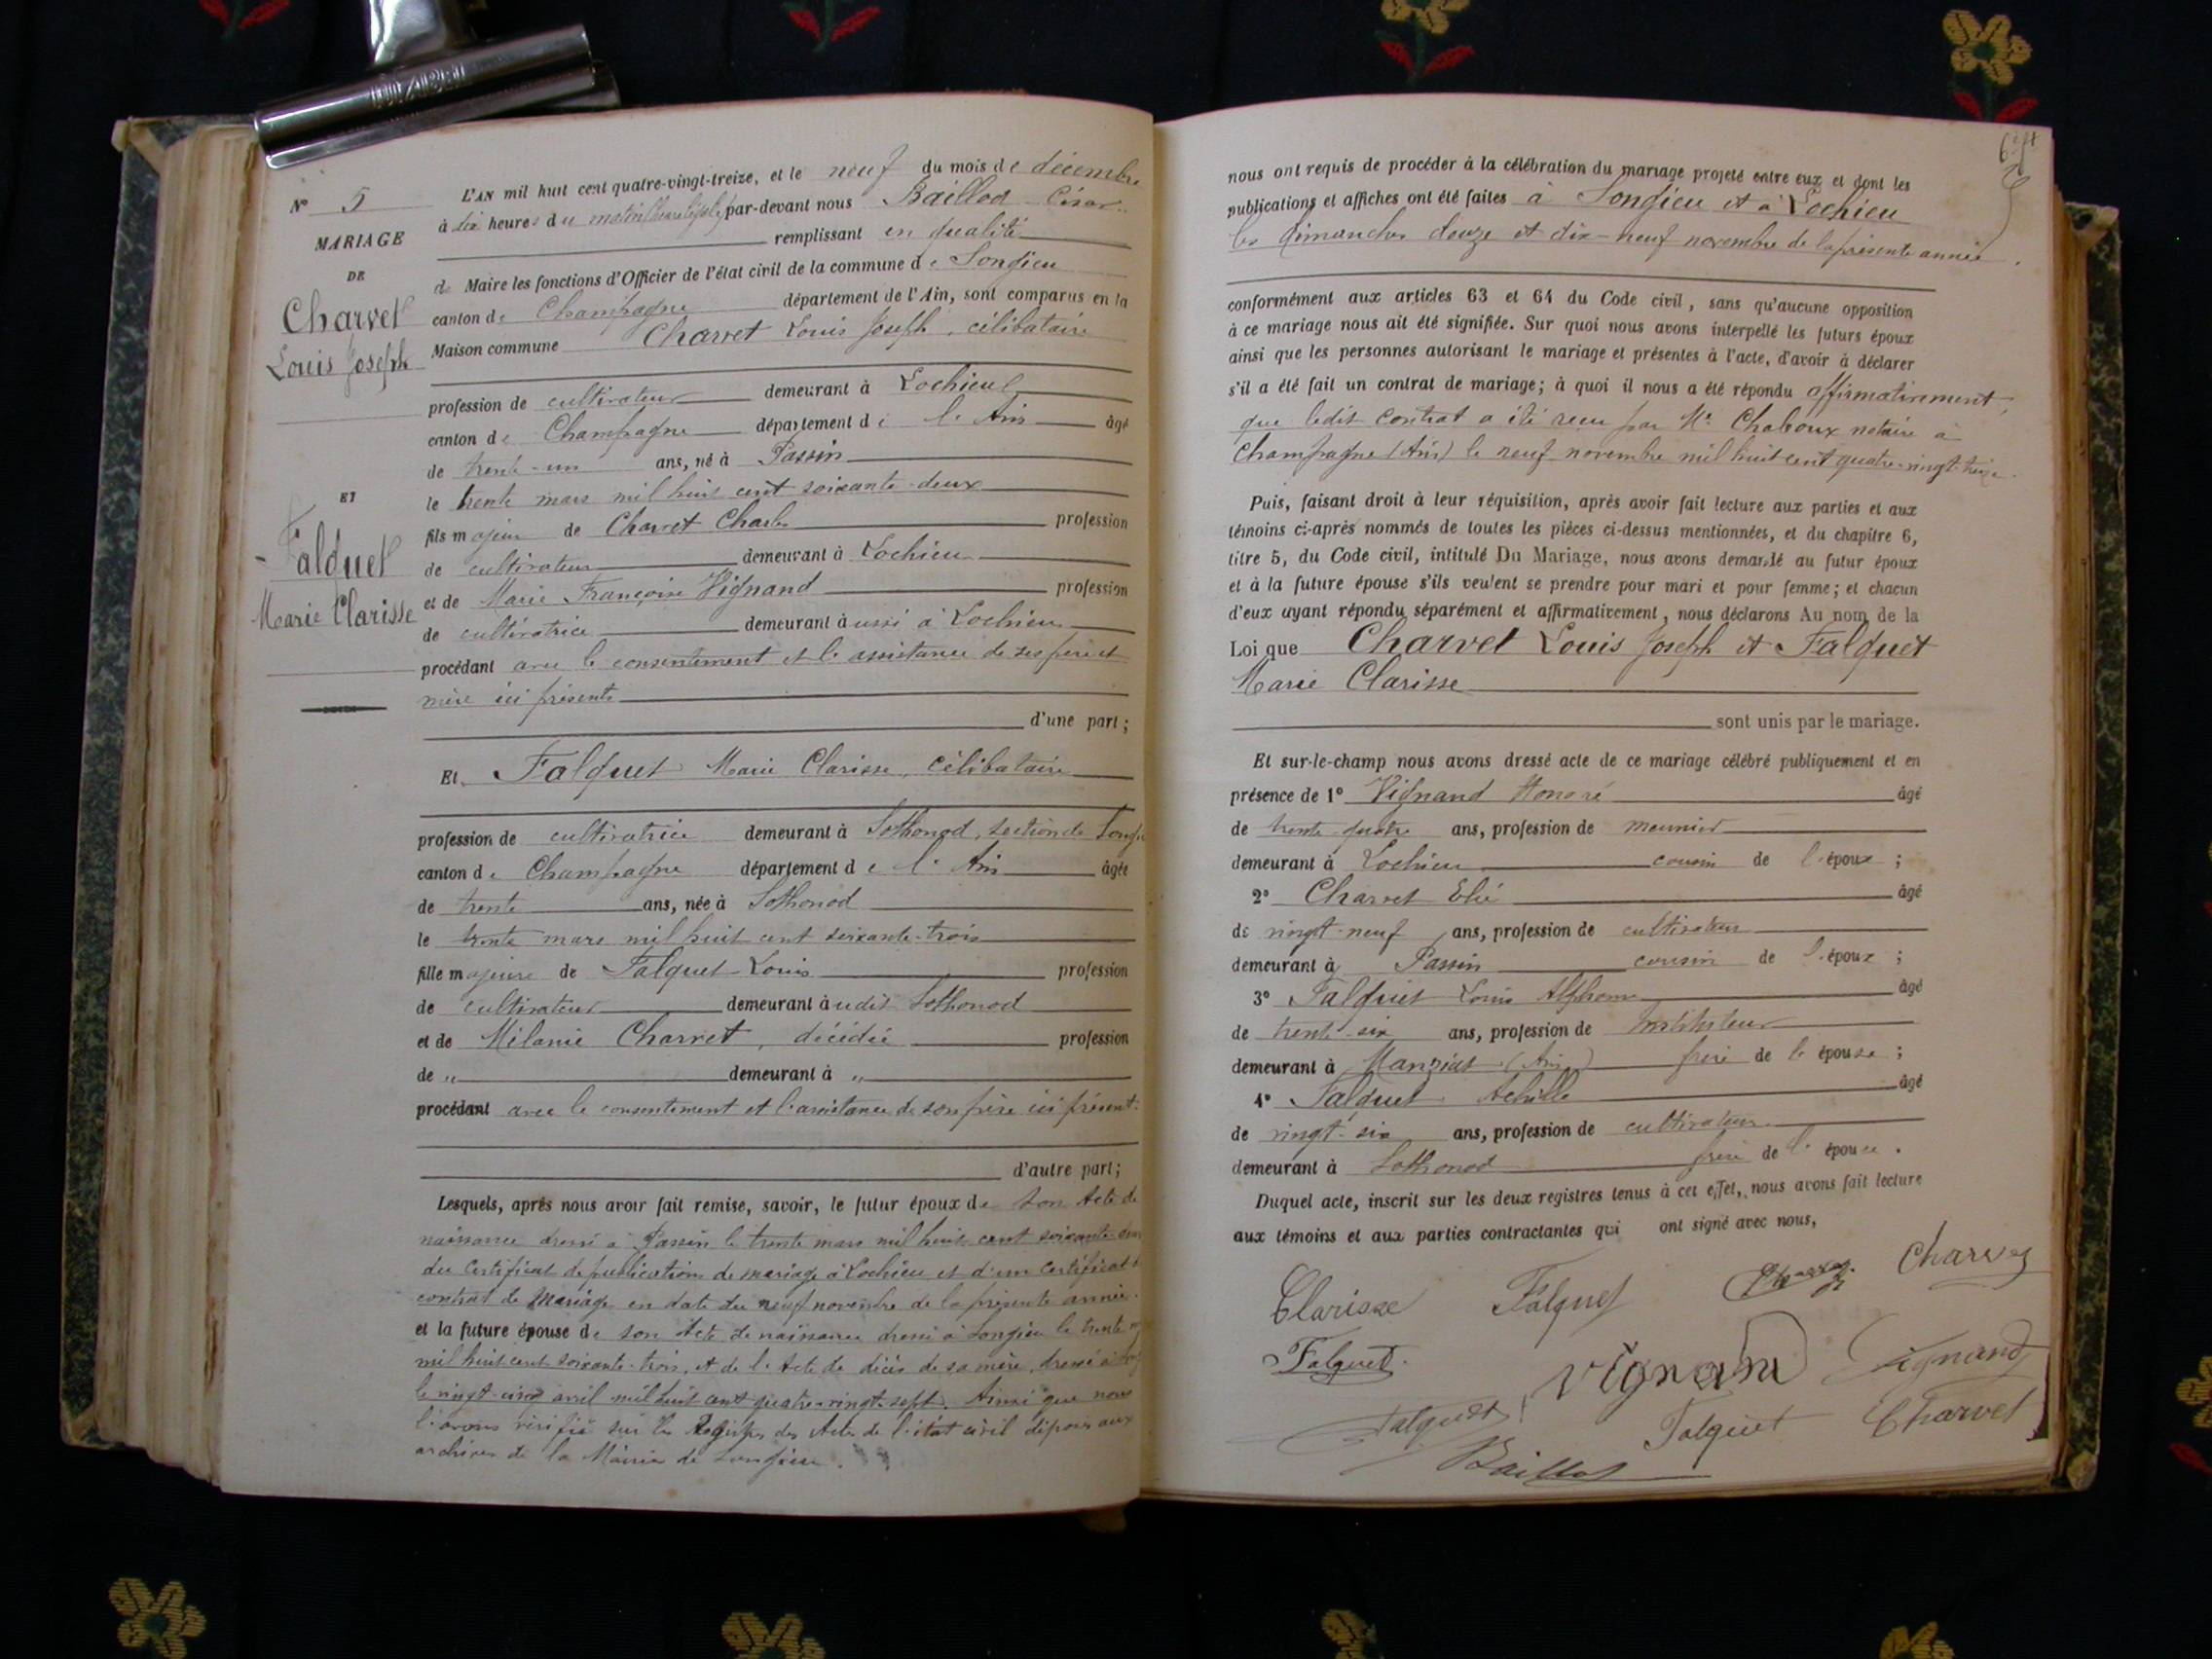 N° 5
MARIAGE
DE
Charvet
Louis Joseph
ET
Falquet
Marie Clarisse
L'AN mil huit cent quatre-vingt-treize, et le neuf du mois de décembre
à dix heures du matin (heure légale) par-devant nous Baillod César
remplissant en qualité
de Maire les fonctions d'Officier de l'état civil de la commune de Songieu
canton de Champagne département de l'Ain, sont comparus en la
Maison commune Charvet Louis Joseph, célibataire
profession de cultivateur demeurant à Lochieu
canton de Champagne département de l'Ain âgé
de trente-un ans, né à Passin
le trente mars mil huit cent soixante-deux
fils majeur de Charvet Charles profession
de cultivateur demeurant à Lochieu
et de Marie Françoise Vignand profession
de cultivatrice demeurant aussi à Lochieu
procédant avec le consentement et l'assistance de ses père et
mère ici présents
d'une part;
Et Falquet Marie Clarisse, célibataire
profession de cultivatrice demeurant à Sothonod, section de
canton de Champagne département de l'Ain âgée
de trente ans, née à Sothonod
le trente mars mil huit cent soixante-trois
fille majeure de Falquet Louis profession
de cultivateur demeurant audit Sothonod
et de Mélanie Charvet, décédée profession
de " demeurant à "
procédant avec le consentement et l'assistance de son père ici présent.
d'autre part;
Lesquels, après nous avoir fait remise, savoir, le futur époux de son Acte de
naissance dressé à Passin le trente mars mil huit cent soixante-deux
du certificat de publication de mariage à Lochieu et d'un certificat de
contrat de mariage en date du neuf novembre de la présente année.
et la future épouse de son Acte de naissance dressé à Songieu le trente
mil huit cent soixante-trois, et de l'Acte de décès de sa mère, dressé à
le vingt-cinq avril mil huit cent quatre-vingt-sept. Ainsi que nous
l'avons vérifié sur les Registres des Actes de l'état civil déposés aux
archives de la Mairie de Songieu.
nous ont requis de procéder à la célébration du mariage projeté entre eux et dont les
publications et affiches ont été faites à Songieu et à Lochieu
les dimanches douze et dix-neuf novembre de la présente année.
conformément aux articles 63 et 64 du Code civil, sans qu'aucune opposition
à ce mariage nous ait été signifiée. Sur quoi nous avons interpellé les futurs époux
ainsi que les personnes autorisant le mariage et présentes à l'acte, d'avoir à déclarer
s'il a été fait un contrat de mariage; à quoi il nous a été répondu affirmativement,
que ledit contrat a été reçu par Me Chaboux notaire à
Champagne (Ain) le neuf novembre mil huit cent quatre-vingt-treize.
Puis, faisant droit à leur réquisition, après avoir fait lecture aux parties et aux
témoins ci-après nommés de toutes les pièces ci-dessus mentionnées, et du chapitre 6,
titre 5, du Code civil, intitulé Du Mariage, nous avons demandé au futur époux
et à la future épouse s'ils veulent se prendre pour mari et pour femme; et chacun
d'eux ayant répondu séparément et affirmativement, nous déclarons Au nom de la
Loi que Charvet Louis Joseph et Falquet
Marie Clarisse
sont unis par le mariage.
Et sur-le-champ nous avons dressé acte de ce mariage célébré publiquement et en
présence de 1° Vignand Honoré âgé
de trente-quatre ans, profession de meunier
demeurant à Lochieu cousin de l'époux;
2° Charvet Elie âgé
de vingt-neuf ans, profession de cultivateur
demeurant à Passin cousin de l'époux;
3° Falquet Louis Alphonse âgé
de trente-six ans, profession de instituteur
demeurant à Manziat (Ain) frère de l'épouse;
4° Falquet Achille âgé
de vingt-six ans, profession de cultivateur
demeurant à Sothonod frère de l'épouse.
Duquel acte, inscrit sur les deux registres tenus à cet effet, nous avons fait lecture
aux témoins et aux parties contractantes qui ont signé avec nous,
Clarisse Falquet Charvet
Falquet Vignand Vignand
Falquet Falquet Charvet
Baillod